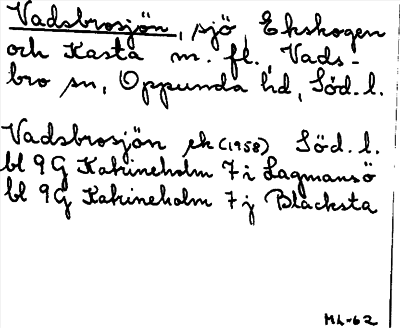 Vadsbrosjön, sjö, Ekskogen
och Kasta m. fl., Vads-
bro sn, Oppunda hd, Söd. l.
Vadsbrosjön ek (1958) Söd. l.
bl 9G Katrineholm 7i Lagmansö
bl 9G Katrineholm 7j Blacksta
ML-62